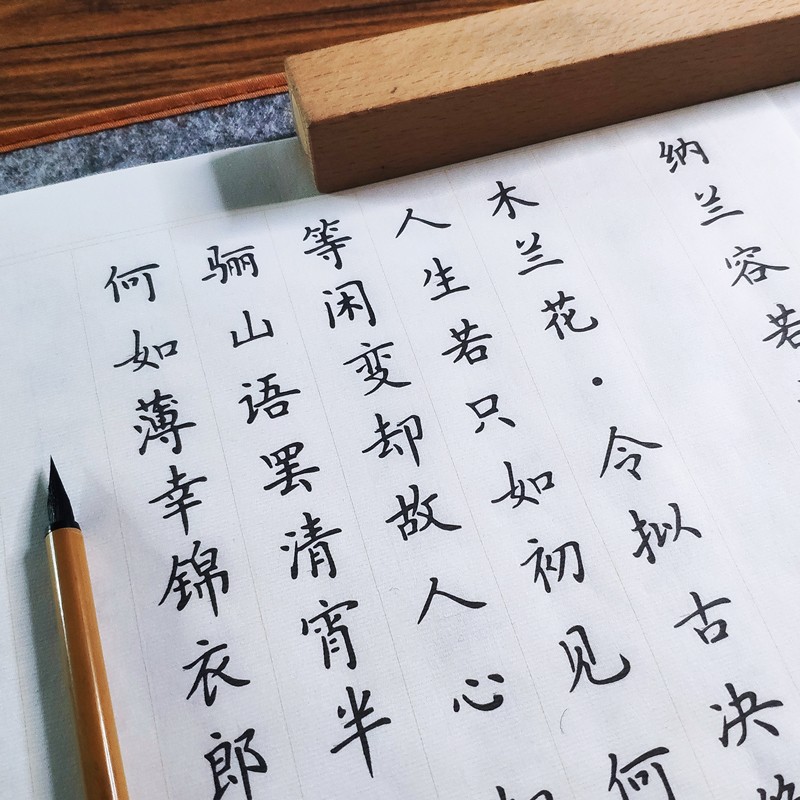 纳兰容若
木兰花·令拟古决
人生若只如初见何
等闲变却故人心
骊山语罢清宵半
何如薄幸锦衣郎